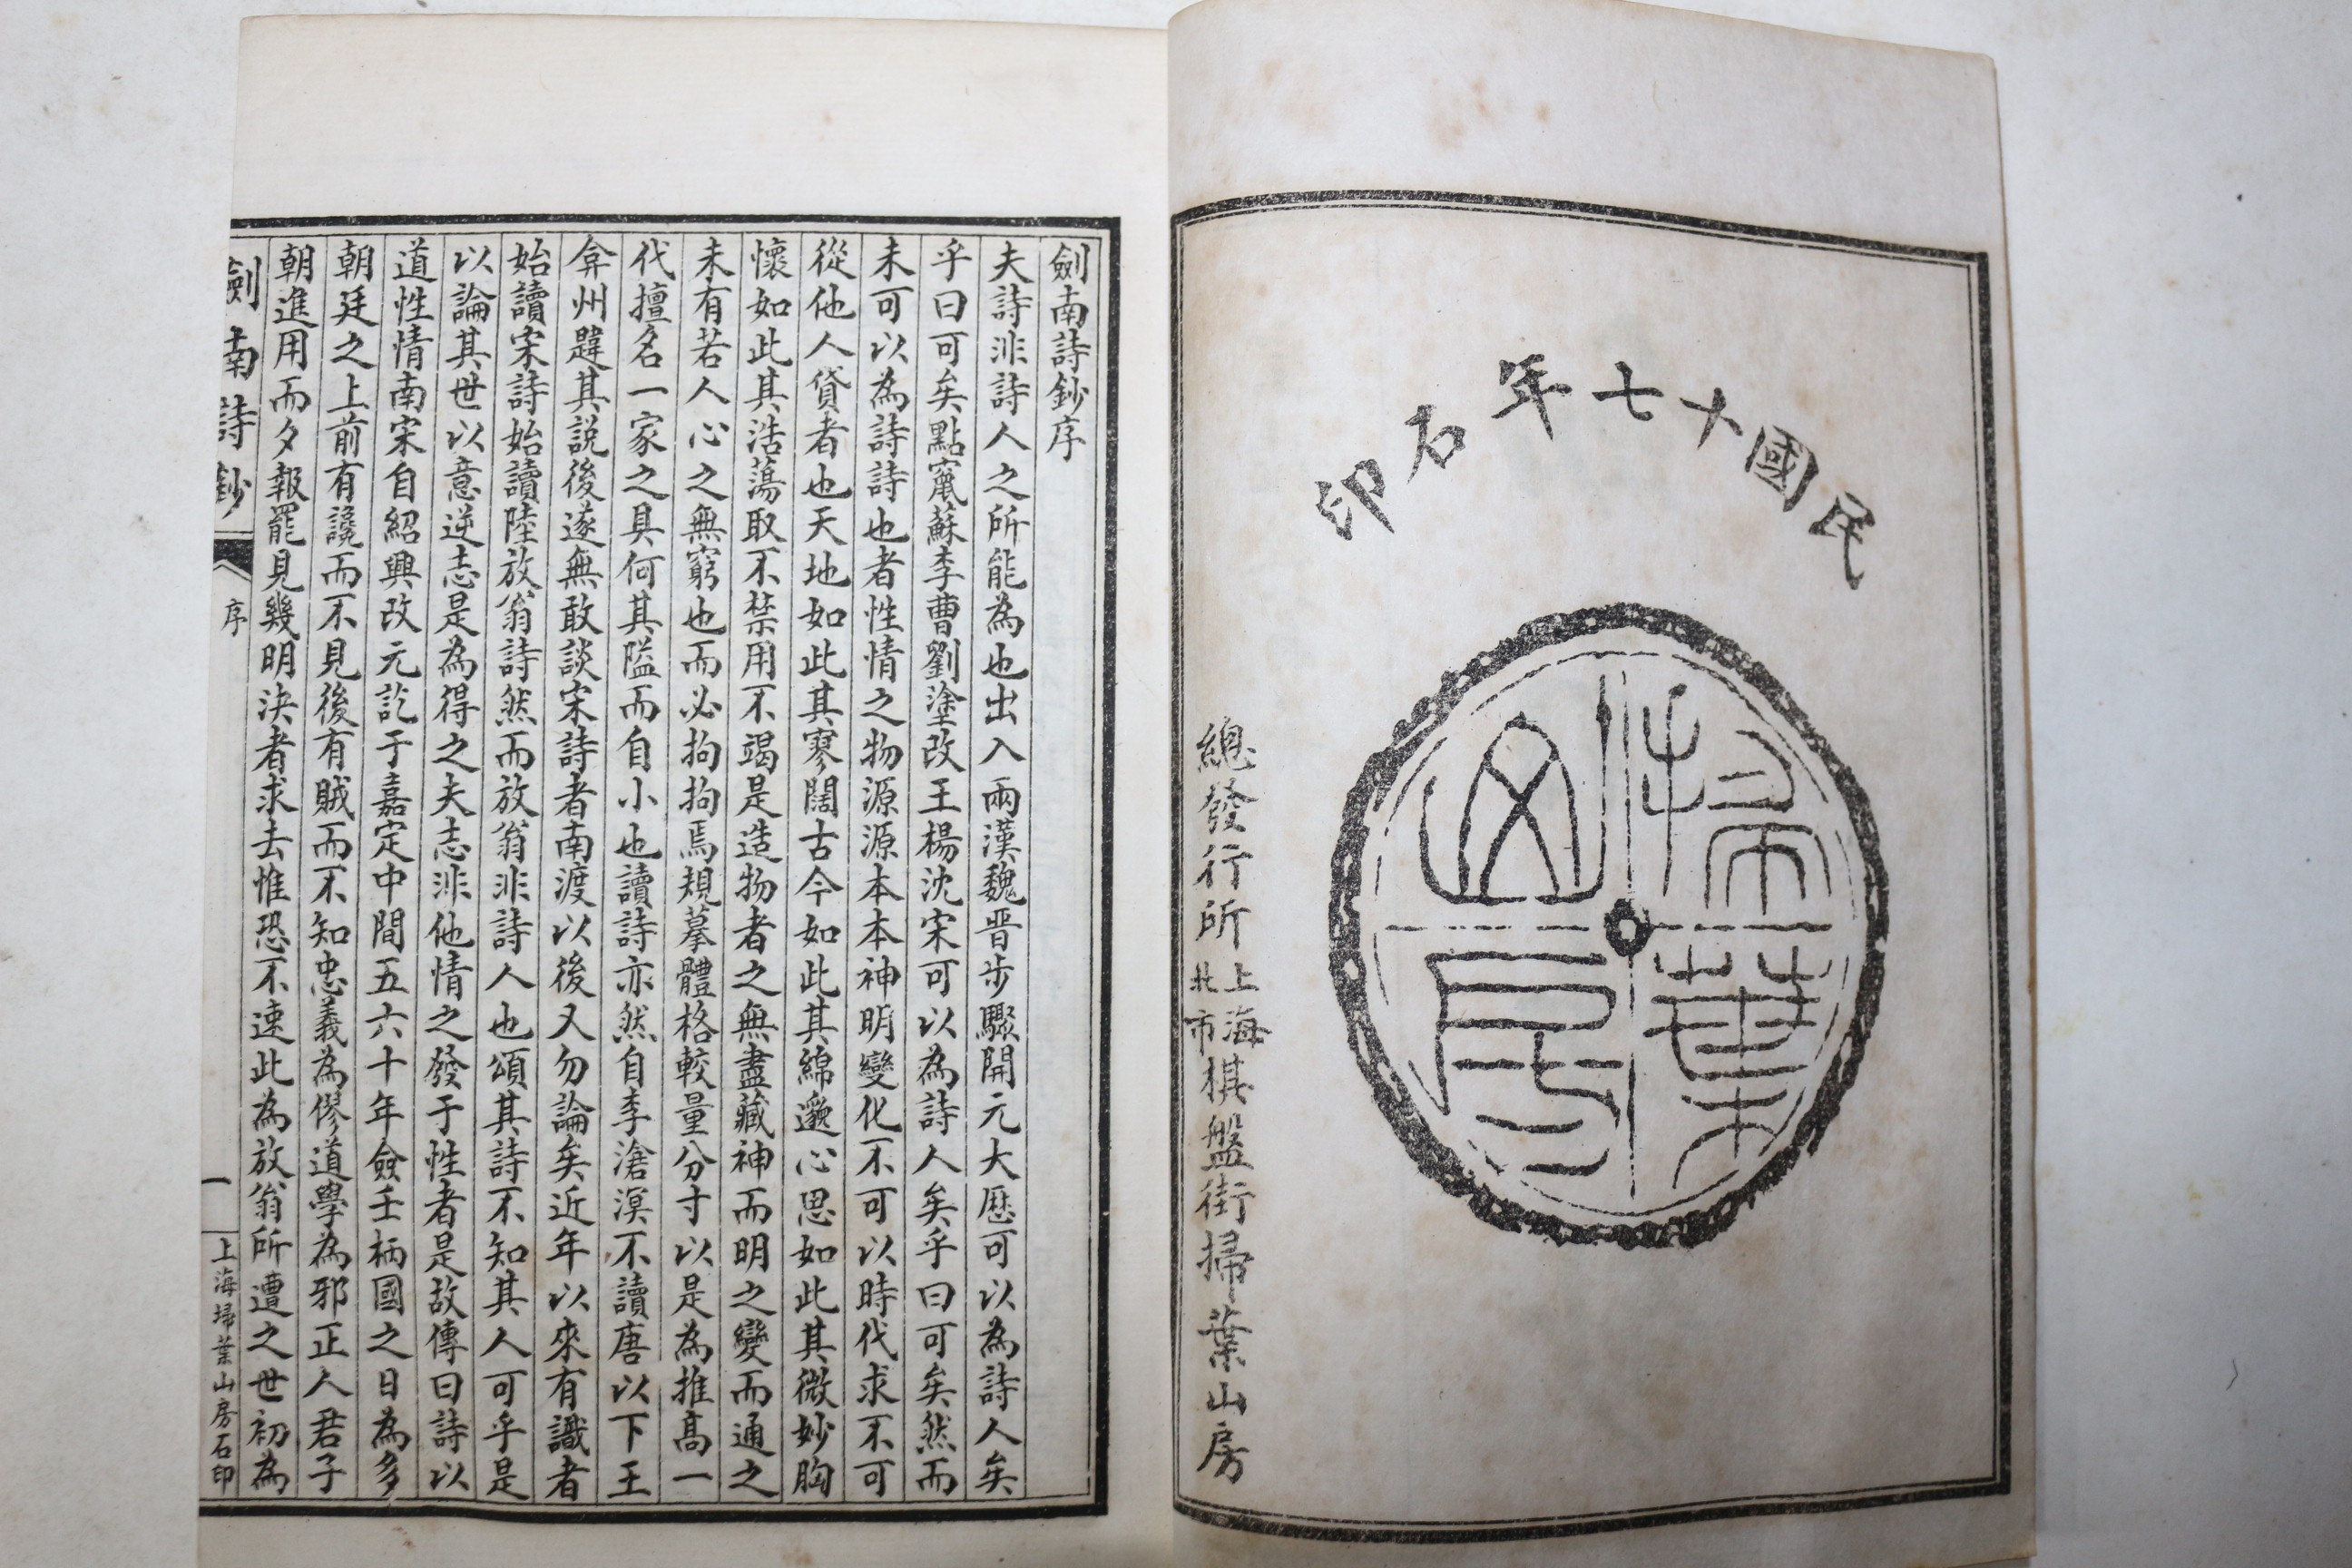 民國十七年石印
掃葉山房
總發行所 上海北市 棋盤街掃葉山房
劍南詩鈔序
夫詩非詩人之所能為也出入兩漢魏晋步驟開元大歷可以為詩人矣
乎曰可矣點竄蘇李曹劉塗改王楊沈宋可以為詩人矣乎曰可矣然而
未可以為詩詩也者性情之物源源本本神明變化不可以時代求不可
從他人貸者也天地如此其寥闊古今如此其綿邈心思如此其微妙胸
懷如此其浩蕩取不禁用不竭是造物者之無盡藏神而明之變而通之
未有若人心之無窮也而必拘拘焉規摹體格較量分寸以是為推高一
代擅名一家之具何其隘而自小也讀詩亦然自李滄溟不讀唐以下王
弇州韙其說後遂無敢談宋詩者南渡以後又勿論矣近年以來有識者
始讀宋詩始讀陸放翁詩然而放翁非詩人也頌其詩不知其人可乎是
以論其世以意逆志是為得之夫志非他情之發于性者是故傳曰詩以
道性情南宋自紹興改元訖于嘉定中間五六十年僉壬柄國之日為多
朝廷之上前有讒而不見後有賊而不知忠義為僇道學為邪正人君子
朝進用而夕報罷見幾明決者求去惟恐不速此為放翁所遭之世初為
劍南詩鈔 序 一 上海埽葉山房石印